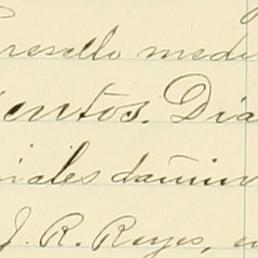 resello medi
ientos. Dia
iales dañin
J. R. Reyes, en